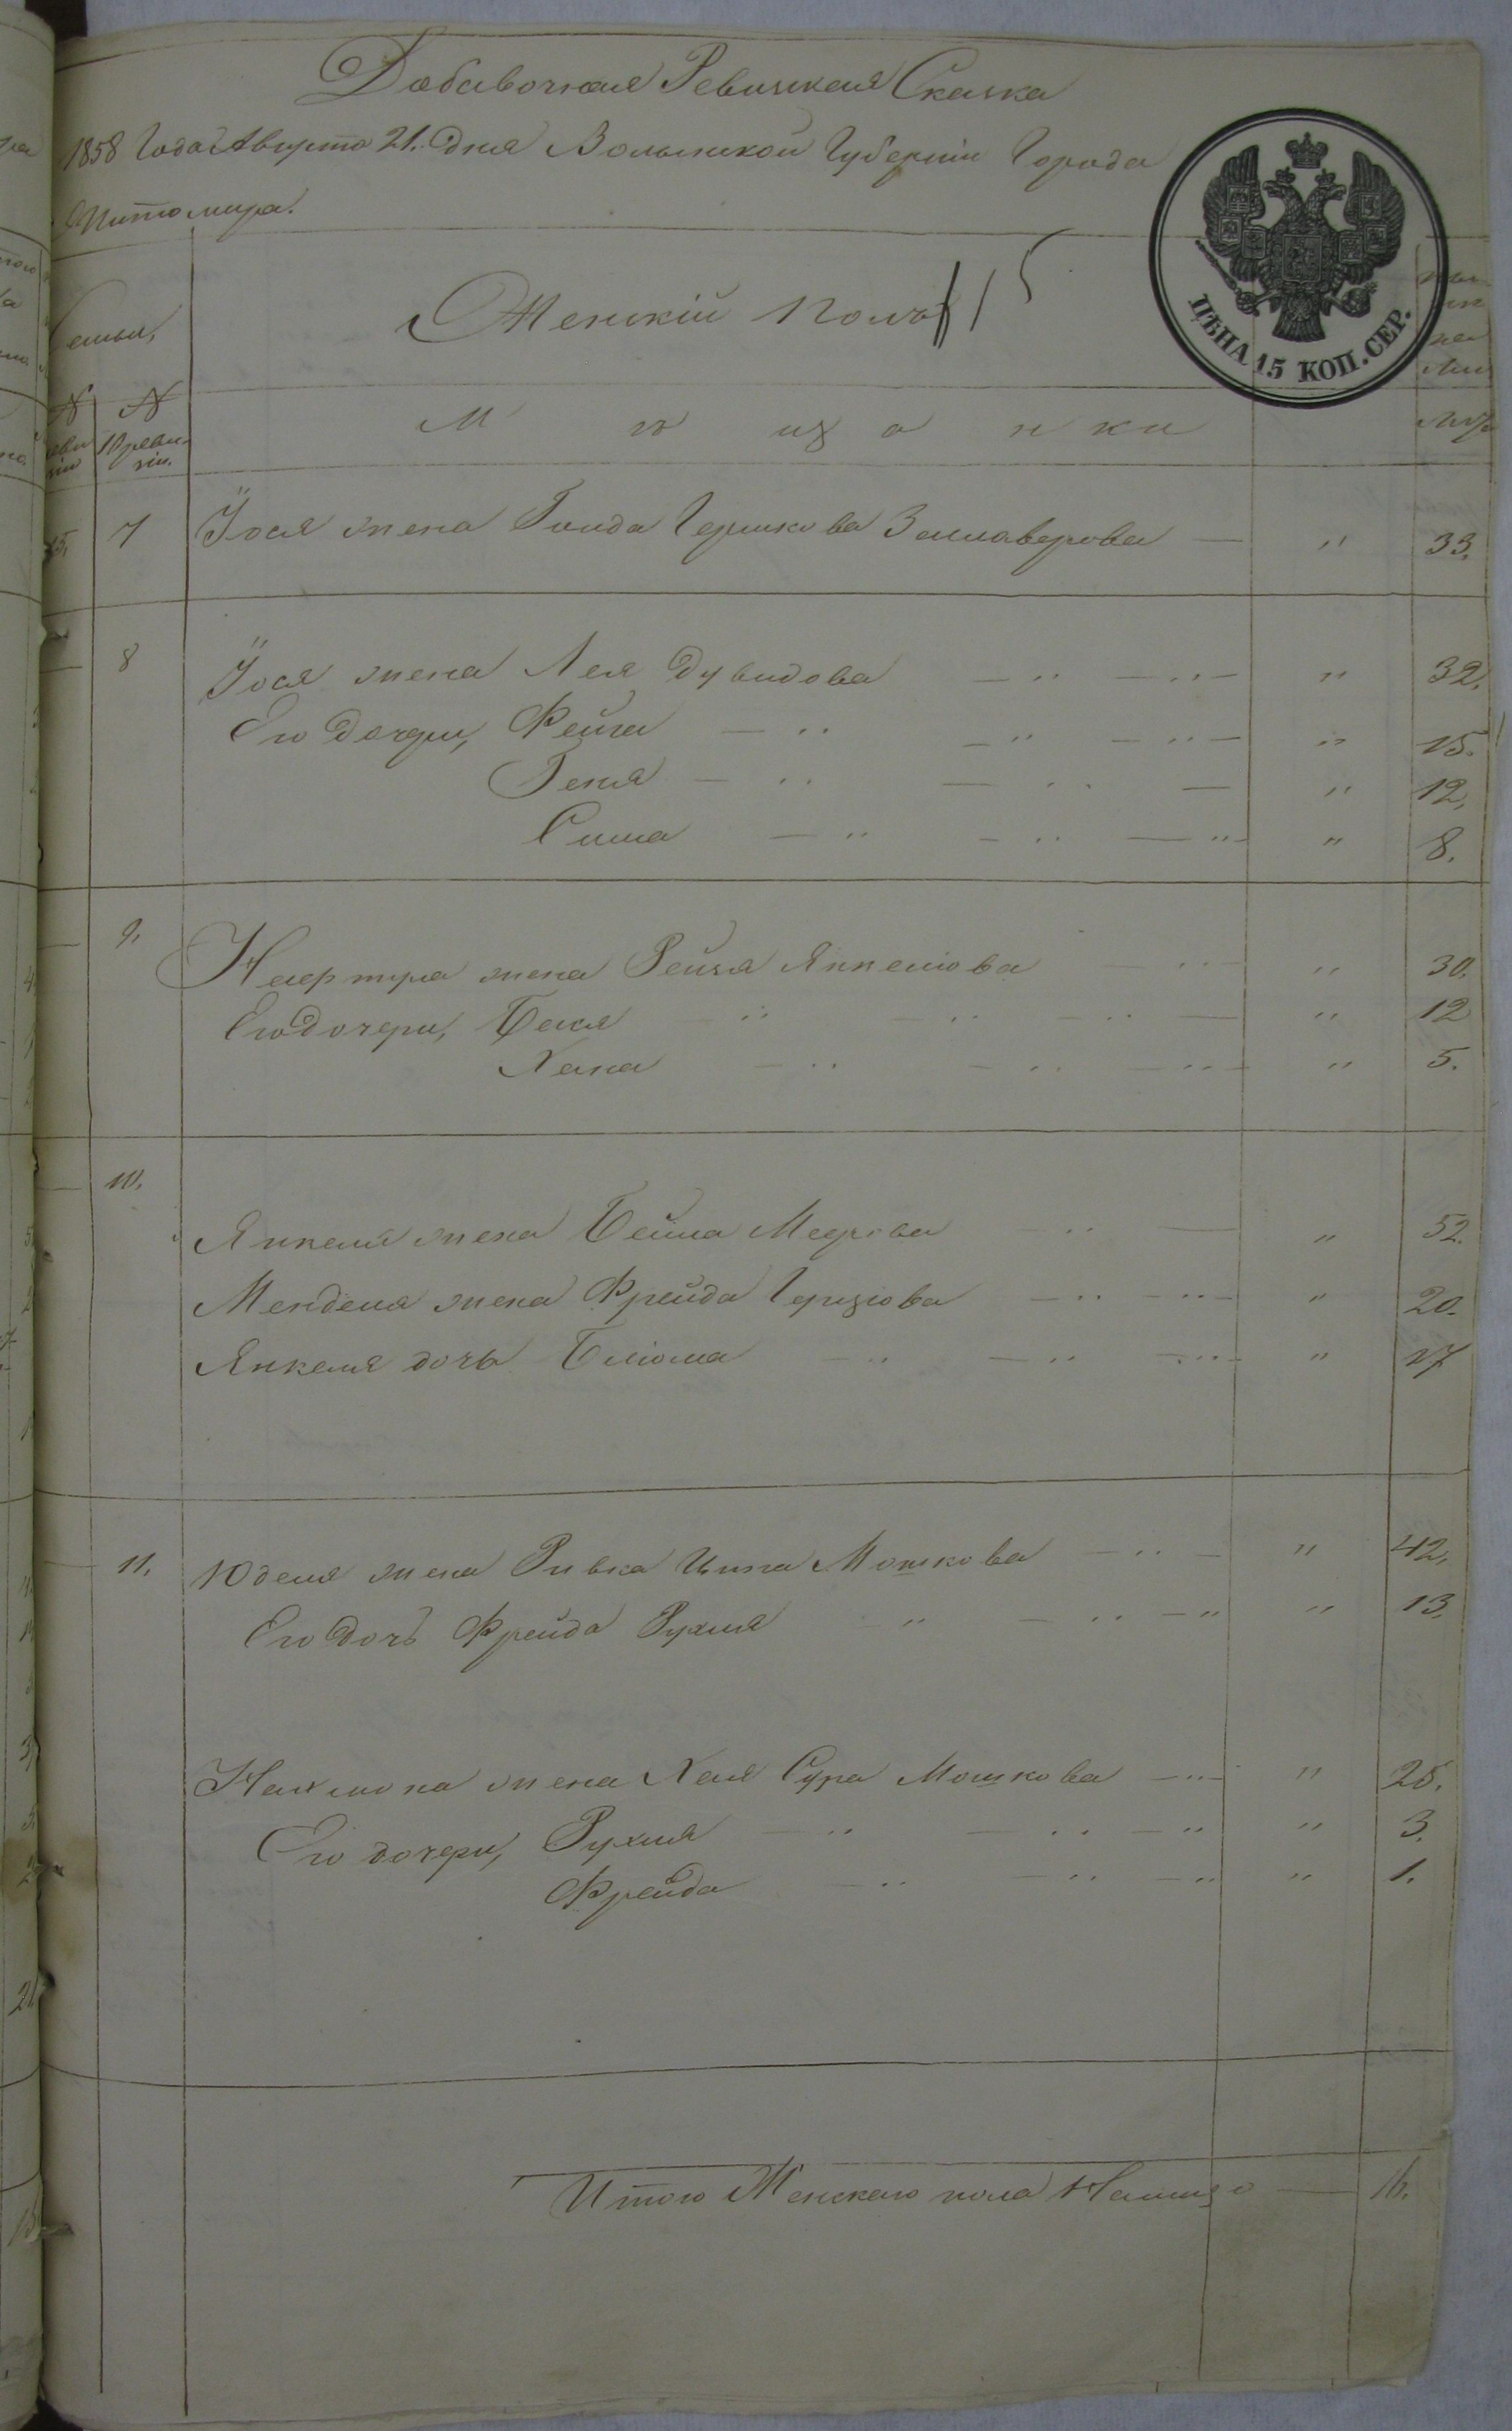 Добавочная Ревизская Сказка
1858 Года Августа 21. Дня Волынской Губерніи Города
Житомира.
ЦѢНА 15 КОП. СЕР.
Семьи,
Женскій Полъ 115
№ №
10 реви-
зіи.
Мѣщанки
7 Іося жена Гинда Гершкова — " 33.
8 Іося жена Лея Дувидова — " — " — " 32.
Его дочери, Фейга — " — " — " — " 15.
Геня — " — " — " 12,
Сима — " — " — " — " 8.
9. жена Рейзя Янкелова " — " 30.
Его дочери, Бася " — " — " — " 12
Хана — " — " — " — " 5.
10.
Янкеля жена Бейла Меерова " — " 52.
Менделя жена Фрейда Герцкова — " — " — " 20.
Янкеля дочь Блюма — " — " — " — " 17
11. Юделя жена Ривка Ципа Мошкова — " — " 42,
Его дочь Фрейда Рухля " — " — " " 13.
Нахмона жена Хая Сура Мошкова — " — " 25.
Его дочери, Рухля — " — " — " " 3.
Фрейда — " — " — " " 1.
Итого Женскаго пола На лицо — 16.